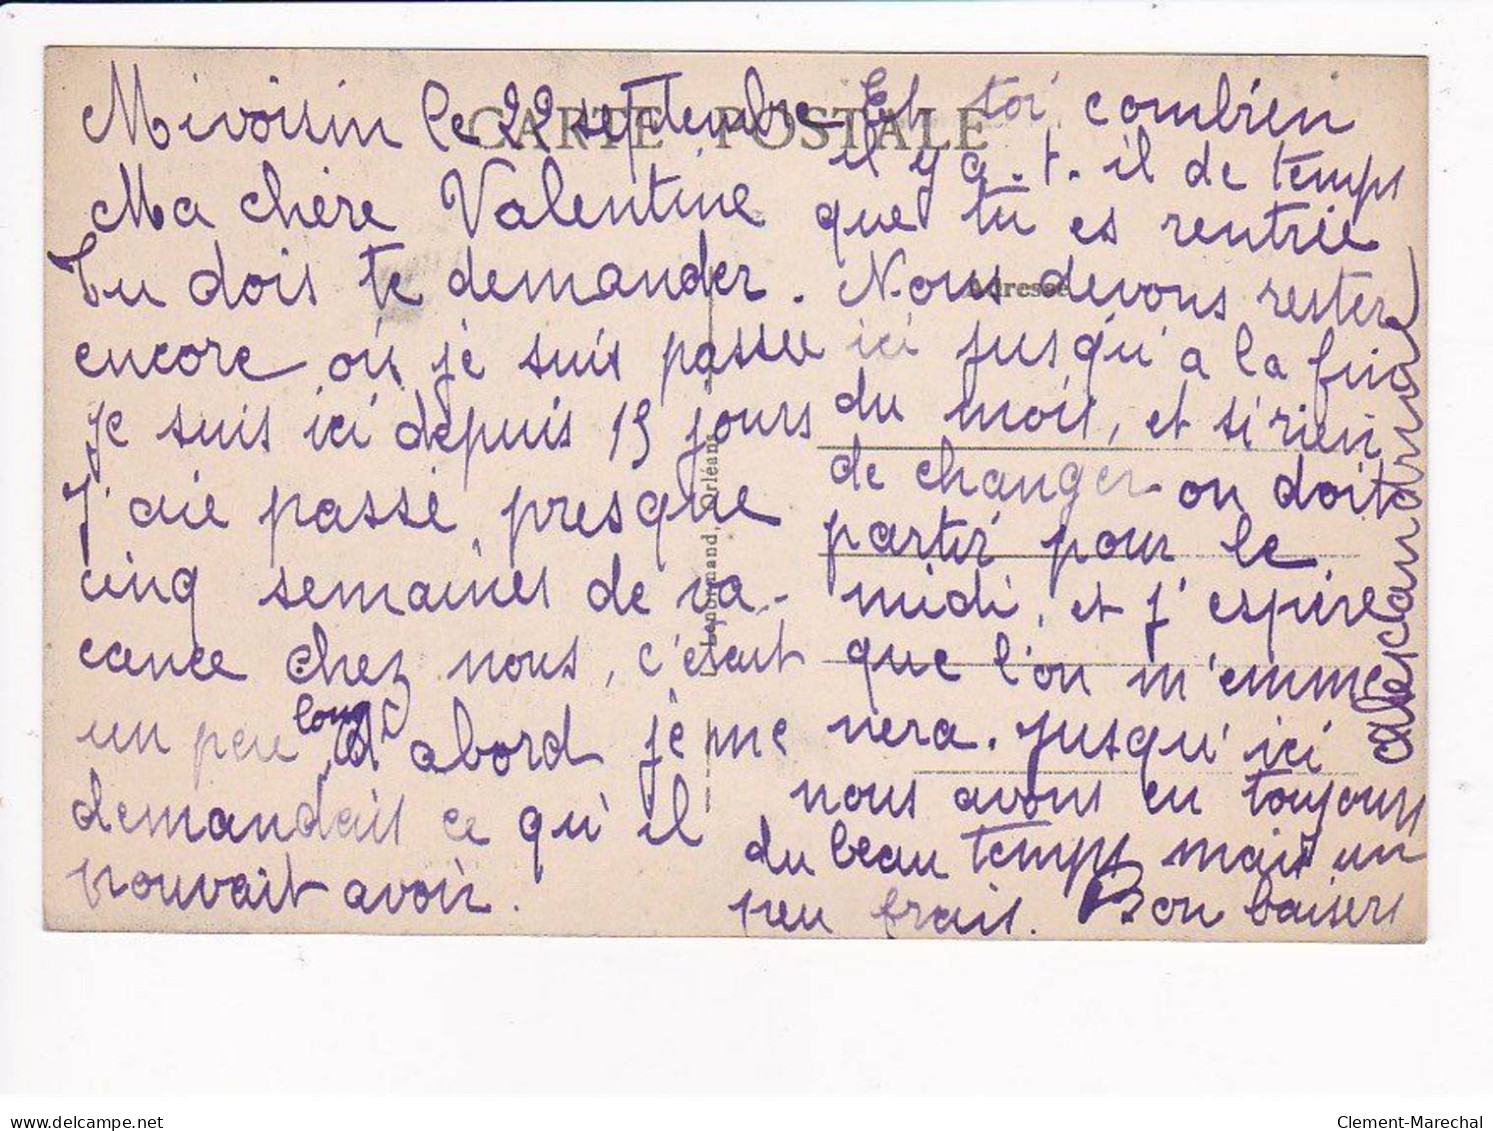 CARTE POSTALE
Mivoisin le 22 septembre
Ma chère Valentine
Tu dois te demander.
encore où je suis passee
je suis ici depuis 15 jours
J'aie passé, presque
cinq semaines de va-
cance chez nous, c'était
un peu long d'abord je me
demandais ce qu'il
pouvait avoir.
Et toi combien
il y a.t.il de temps
que tu es rentrée
Nous devons rester
ici jusqu'a la fin
du mois, et si rien
de changer on doit
partir pour le
midi, et j'espère
que l'on m'emme
nera. jusqu'ici
nous avons eu toujours
du beau temps mais un
peu frais. Bon baisers
Alexandrine
Adresse
Lenormand, Orléans
Clement-Marechal
delcampe.net